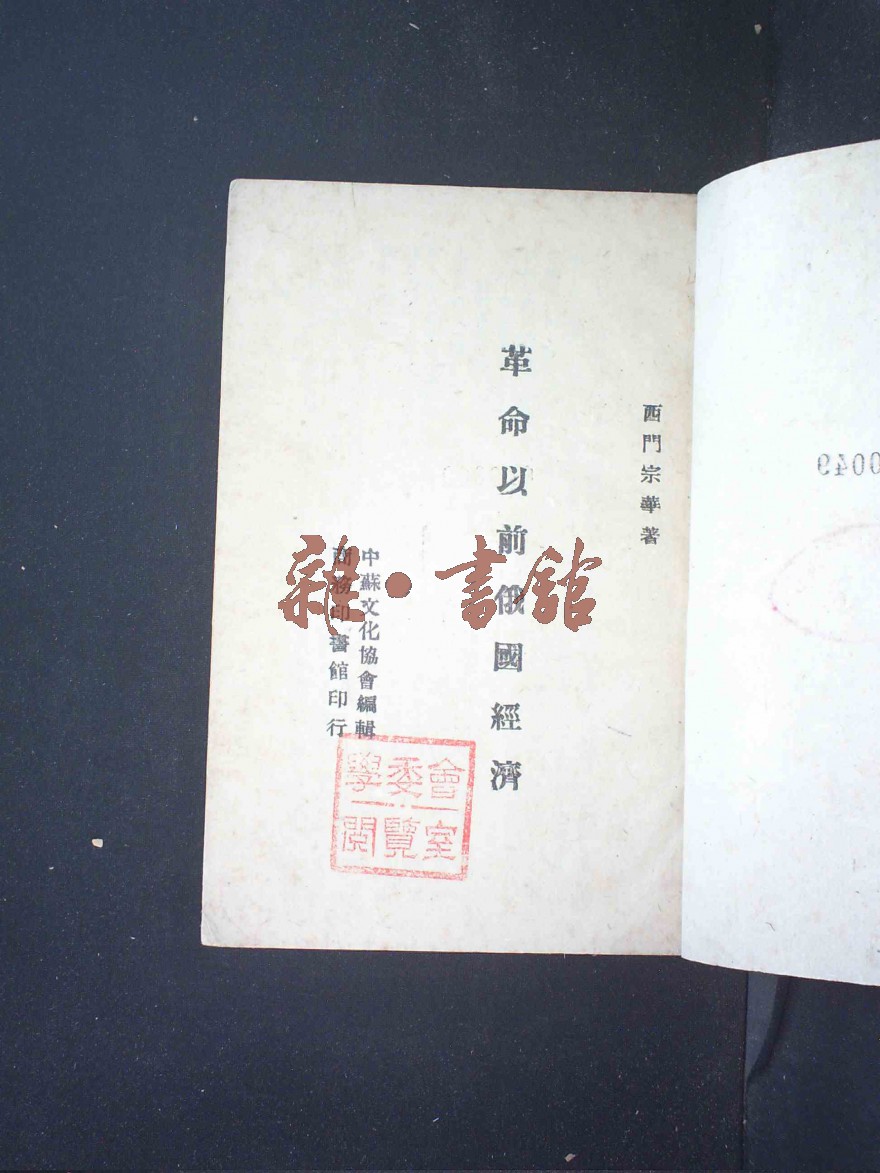 西門宗華著
革命以前俄國經濟
中蘇文化協會編輯
商務印書館印行
學委會
閱覽室
雜·書館